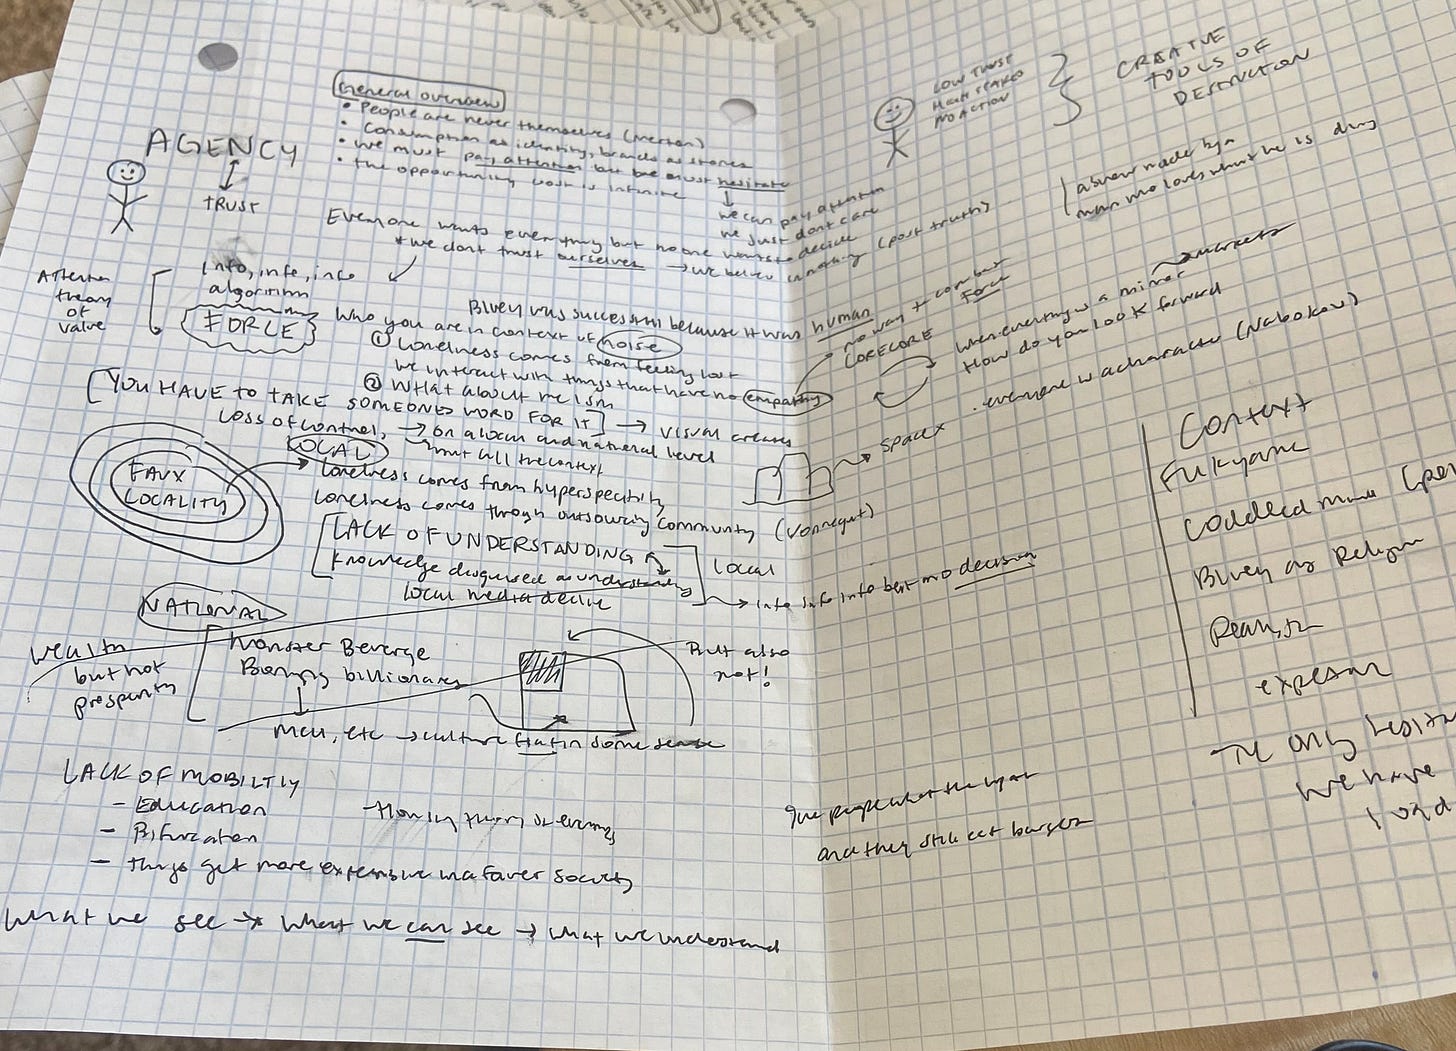 General overview
• People are never themselves (Merton)
• Consumption as identity, brands as stories
• we must pay attention but we must hesitate
• the opportunity cost is infinite
we can pay attention
we just dont care
AGENCY
TRUST
Everyone wants everything but no one wants to decide
* we dont trust ourselves → we believe in nothing (post truth)
Attention
theory
of
value
info, info, info
algorithm
FORCE
Bluey was successful because it was human
Who you are in context of noise
① Loneliness comes from feeling lost
we interact with things that have no empathy
② What about me ism
[YOU HAVE TO TAKE SOMEONES WORD FOR IT] → visual
Loss of control, → on a local and national level
not all the context
LOCAL
FAUX
LOCALITY
Loneliness comes from hyperspecificity
Loneliness comes through outsourcing community (Vonnegut)
LACK OF UNDERSTANDING
knowledge disguised as understanding
local media decline
local
→ info info info but no decision
NATIONAL
wealth
but not
prosperity
Monster Beverage
billionaires
MCU, etc → culture flat in some sense
But also
not!
LACK OF MOBILTIY
- Education
- Bifurcation
- things get more expensive in a society
- Housing theory of everything
What we see → what we can see → what we understand
LOW TRUST
HIGH STAKES
NO ACTION
CREATIVE
TOOLS OF
DESTRUCTION
a show made by a
man who loves what he is doing
no way to combat
force
CORECORE
→ markets
when everything is a mirror
How do you look forward
• everyone is a character (Nabokov)
SpaceX
Context
Fukyama
Coddled
Bluey as Religion
and they still eat burgers
The only
we have